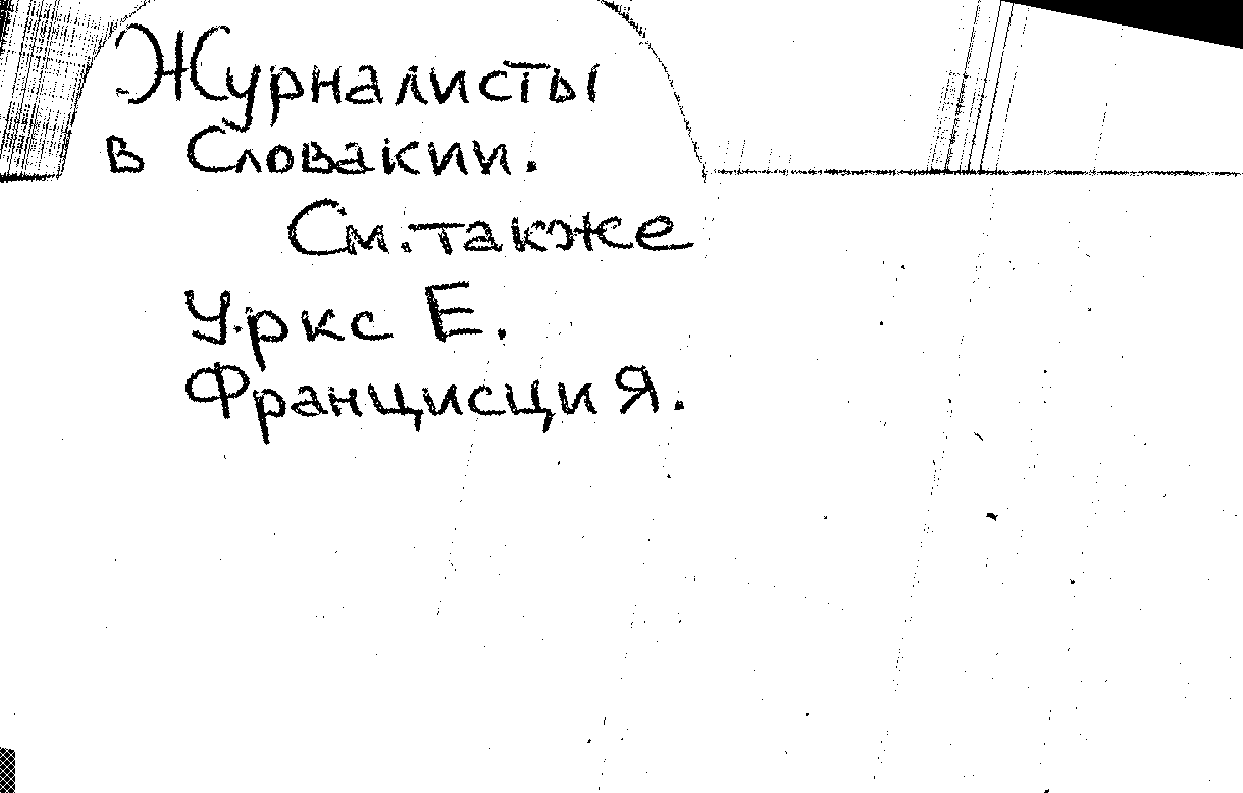 Журналисты
в Словакии.
См. также
Уркс Е.
Францисци Я.